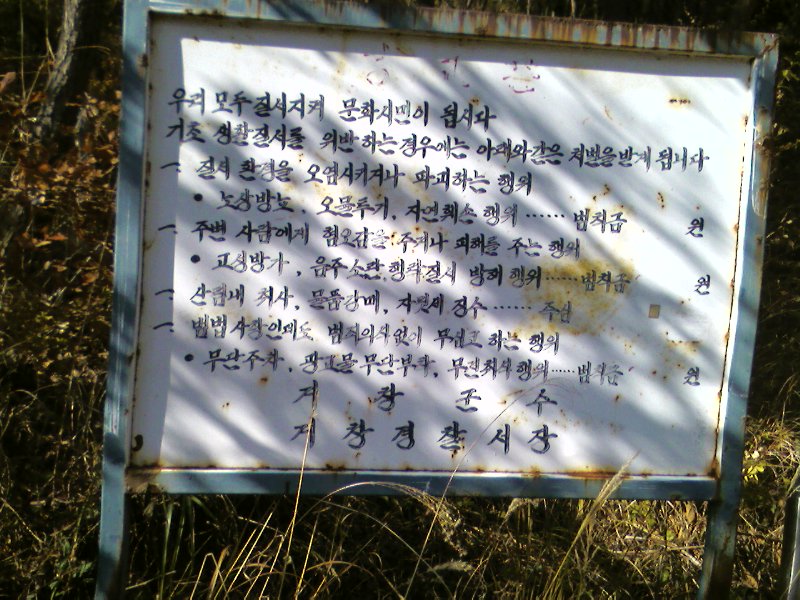 우리 모두 질서지켜 문화시민이 됩시다
기초 생활질서를 위반하는 경우에는 아래와같은 처벌을받게 됩니다
一. 질서 환경을 오염시키거나 파괴하는 행위
• 노상방뇨, 오물투기, 자연훼손 행위 …… 범칙금 원
一. 주변 사람에게 혐오감을 주거나 피해를 주는 행위
• 고성방가, 음주소란, 행락질서 방해 행위 …… 범칙금 원
一. 산림내 취사, 물품강매, 자릿세 징수 ……
一. 범법사항인데도 범죄의식없이 무심코 하는 행위
• 무단주차, 광고물 무단부착, 무전취식행위 …… 범칙금 원
거창군수
거창경찰서장